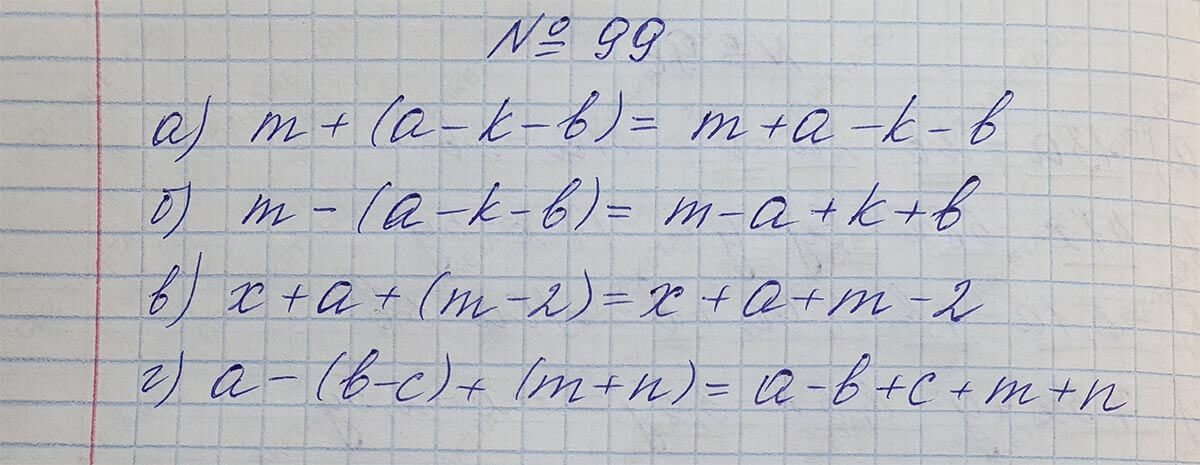 № 99
а) m + (a - k - b) = m + a - k - b
б) m - (a - k - b) = m - a + k + b
в) x + a + (m - 2) = x + a + m - 2
г) a - (b - c) + (m + n) = a - b + c + m + n